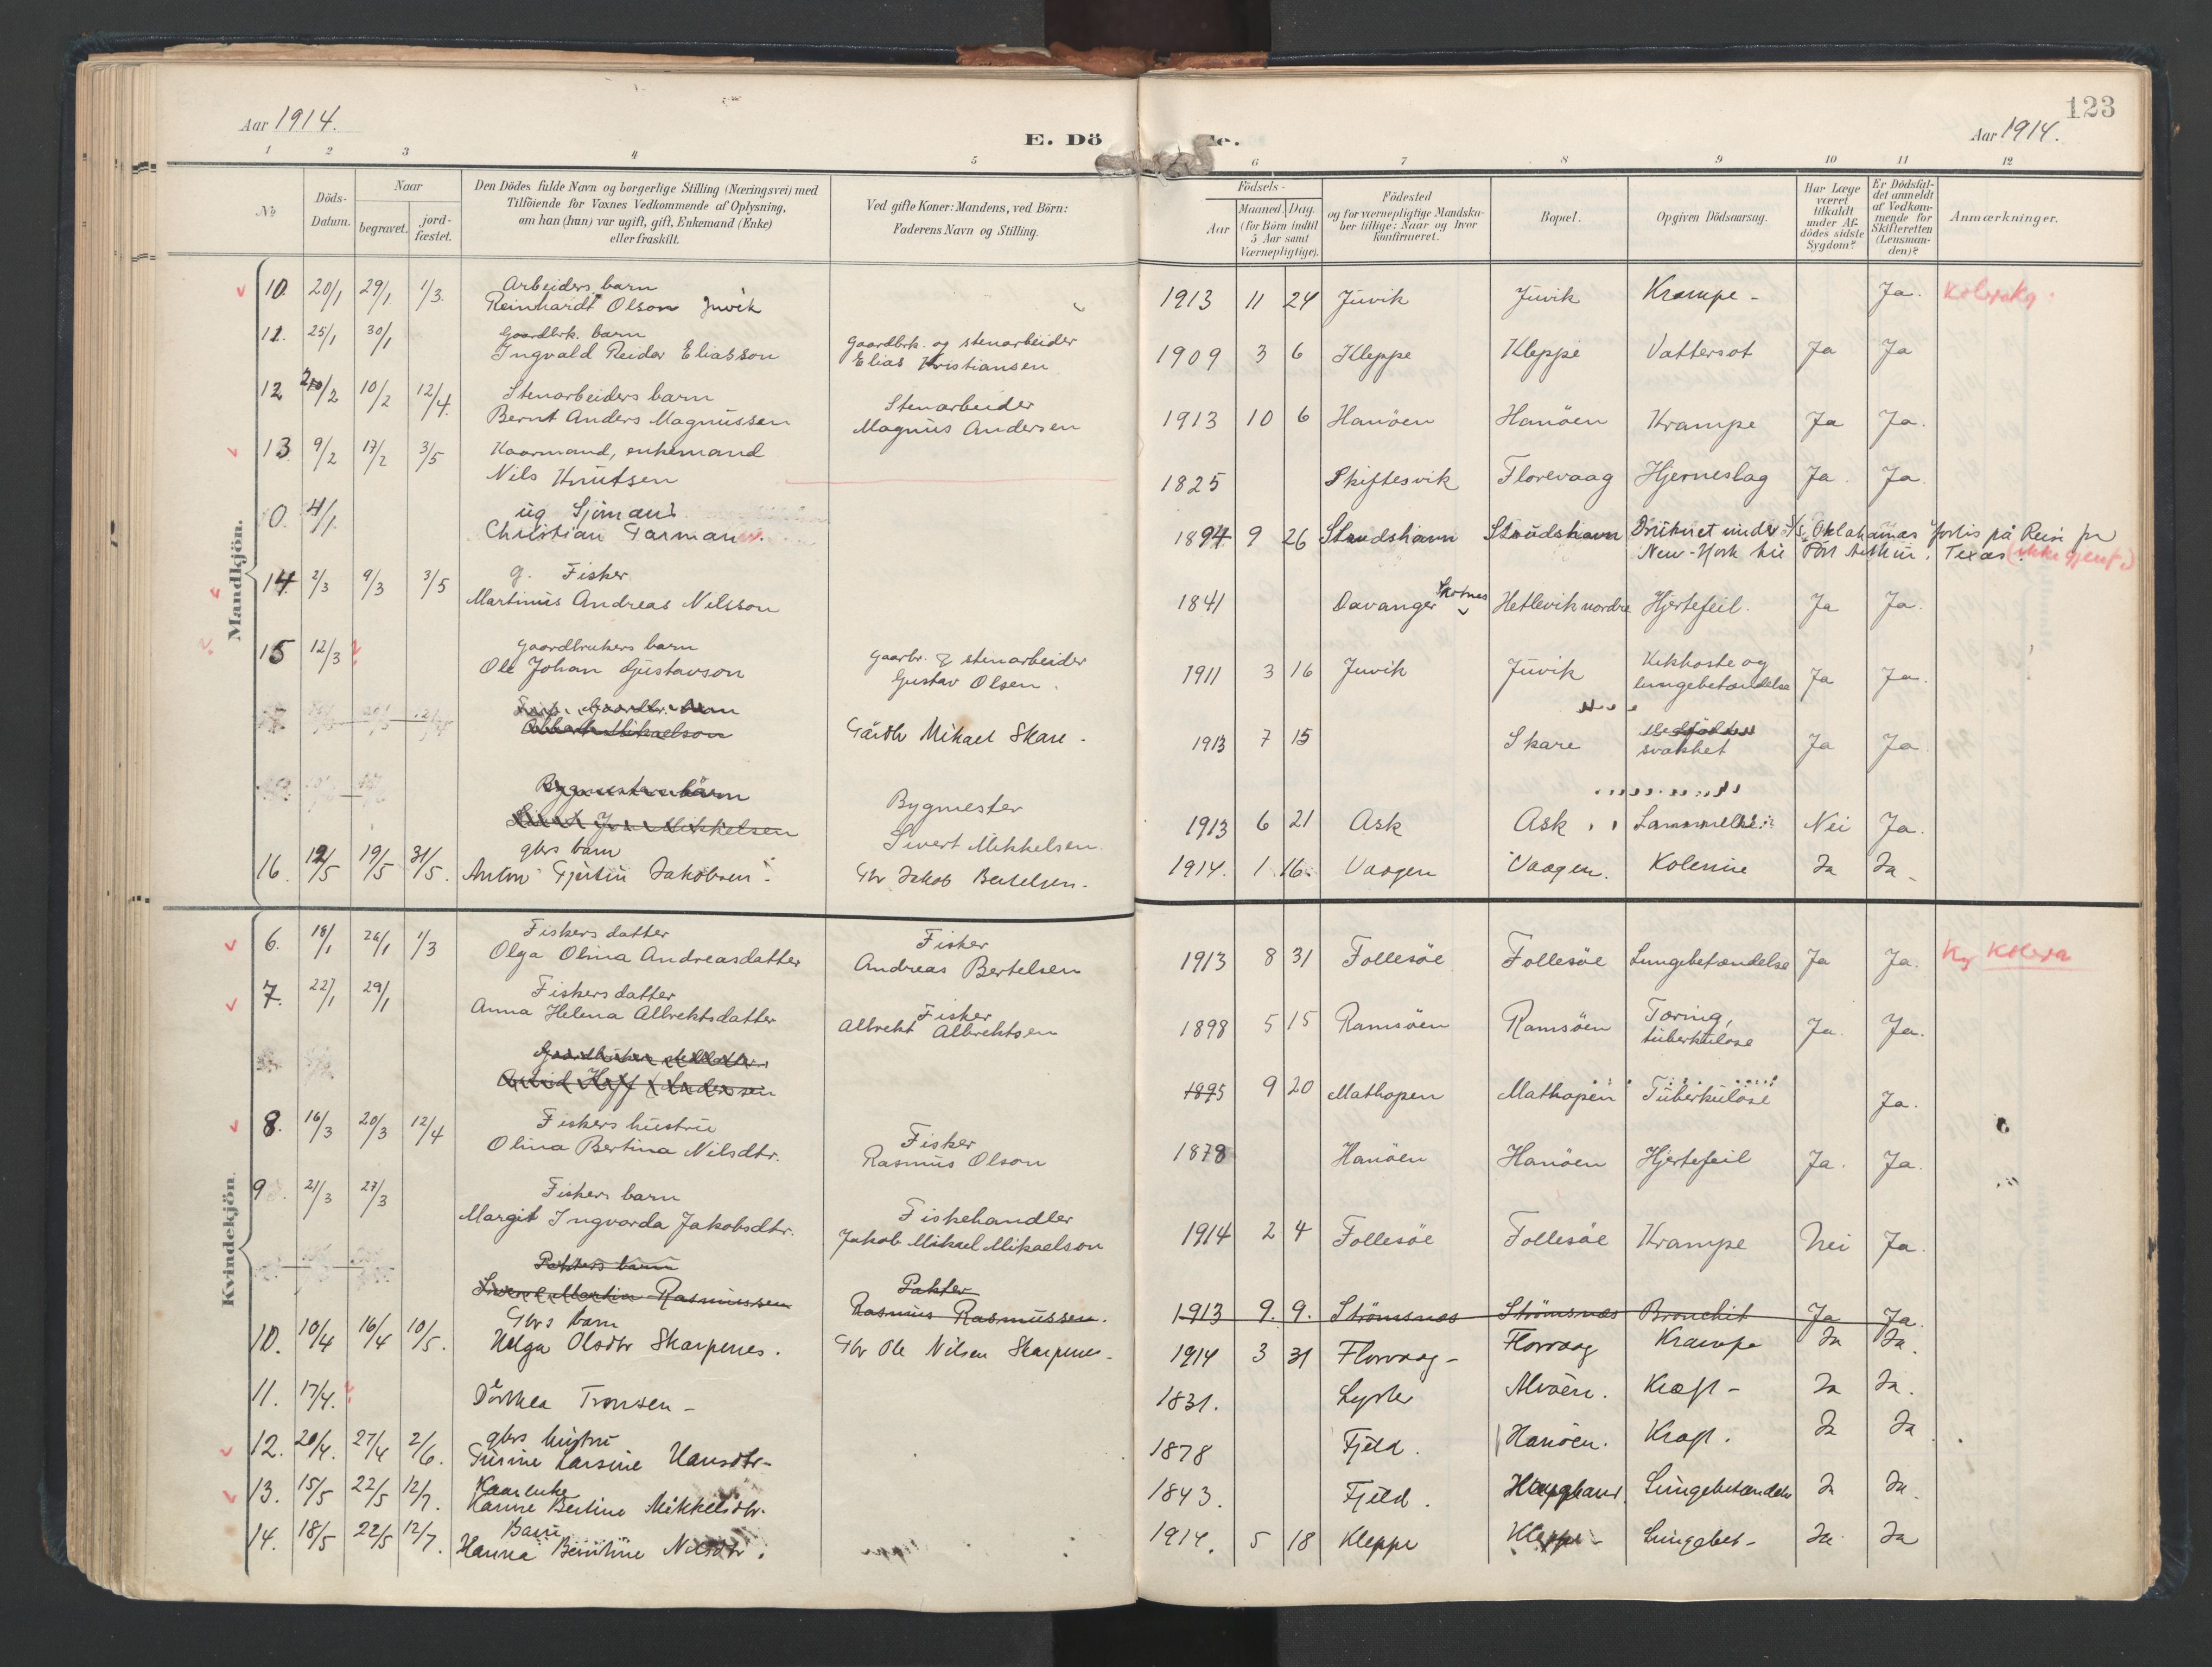 123
Aar 1914.
E. Dö de.
Aar 1914.
1 2 3 4 5 6 7 8 9 10 11 12
No
Döds-Datum.
Naar
begravet.
jord-fæstet.
Den Dödes fulde Navn og borgerlige Stilling (Næringsvei) med
Tilföiende for Voxnes Vedkommende af Oplysning,
om han (hun) var ugift, gift, Enkemand (Enke)
eller fraskilt.
Ved gifte Koner: Mandens, ved Börn:
Faderens Navn og Stilling.
Födsels-
Aar
Maaned. Dag.
(for Börn indtil
5 Aar samt
Værnepligtige).
Födested
og for værnepligtige Mandska-
ber tillige: Naar og hvor
konfirmeret.
Bopæl.
Opgiven Dödsaarsag.
Har Læge
været
tilkaldt
under Af-
dödes sidste
Sygdom?
Er Dödsfal-
det anmeldt
af Vedkom-
mende for
Skifteretten
(Lensman-
den)?
Anmærkninger.
Mandkjön.
10. 20/1 29/1 1/3. Arbeiders barn
Reinhardt Olson Juvik 1913 11 24 Juvik Juvik Krampe - Ja.
11. 25/1 30/1 Gaardbrk. barn
Ingvald Reidar Eliasson Gaardbrk. og stenarbeider
Elias Kristiansen 1909 3 6 Kleppe Kleppe Vattersot Ja Ja
12 10/2 12/4. Stenarbeiders barn
Bernt Anders Magnussen Stenarbeider
Magnus Andersen 1913 10 6 Hanöen Hanöen Krampe Ja Ja.
13 9/2 17/2 3/5 Kaarmand, enkemand
Nils Knutsen 1825 Skiftesvik Florevaag Hjerneslag Ja. Ja.
0. 4/1 ug Sjömand
Christian Tarman 1894 9 26 Strudshavn Strudshavn Druknet under S/S Oklahamas forlis på Reise fra
New-York til Port Arthur, Texas (ikke gjenf.)
14. 2/3 9/3 3/5 g. Fisker
Martinus Andreas Nilsson 1841 Davanger Hetlevik nordre Hjertefeil. Ja Ja.
15 12/3 Gaardbrukers barn
Ole Johan Gustavson Gaarbr. & stenarbeider
Gustav Olsen. 1911 3 16 Juvik Juvik Kikhoste og
lungebetændelse Ja Ja.
Gårdbr Mikael Skare. 1913 7 15 Skare svakhet Ja Ja
Bygmester
Sivert Mikkelsen. 1913 6 21 Ask Ask Nei Ja.
16. 12/5 19/5 31/5. gbrs barn
Anton Gjertin Jakobsen. Gbr Jakob Bertelsen. 1914. 1 16. Vaagen Vaagen. Kolerine Ja Ja.
Kvindekjön.
6. 18/1 26/1 1/3 Fiskers datter
Olga Olina Andreasdatter Fisker
Andreas Bertelsen 1913 8 31 Follesöe Follesöe Lungebetændelse Ja Ja.
7. 22/1 29/1 Fiskers datter
Anna Helena Albrektsdatter Fisker
Albrekt Albrektsen 1898 5 15 Ramsöen Ramsöen Tæring,
tuberkulose Ja. Ja.
1895 9 20 Mathopen Mathopen Tuberkulose Ja.
8. 16/3 20/3 12/4 Fiskers hustru
Olina Bertina Nilsdtr. Fisker
Rasmus Olson 1878 Hanöen Hanöen Hjertefeil Ja. Ja.
9 21/3 27/3 Fiskers barn
Margit Ingvarda Jakobsdtr. Fiskehandler
Jakob Mikael Mikaelson 1914 2 4 Follesöe Follesöe Krampe Nei Ja.
Martin Rasmussen Pakter
Rasmus Rasmussen. 1913 9. 9. Strömsnes Strömsnes Bronchit Ja Ja.
10. 10/4 16/4 10/5. Gbrs barn
Helga Olsdtr Skarpenes. Gbr Ole Nilsen Skarpenes. 1914 3 31 Florvaag - Florvaag Krampe Ja Ja.
11. 17/4. Dorthea Tronsen - 1831. Alvöen. Kræft - Ja Ja.
12. 20/4. 27/4 2/6. gbrs hustru
Larsine Hansdtr - 1878 Fjeld. Hanöen. Kræft. Ja Ja
13. 15/5 22/5 12/7. Kaarenke
Hanne Bertine Mikkelsdtr. 1843. Fjeld. Lungebetændelse Ja Ja.
14. 18/5 22/5 12/7. Barn
Hanna Nilsdtr. 1914. 5 18 Kleppe Kleppe - Lungebet - Ja. Ja